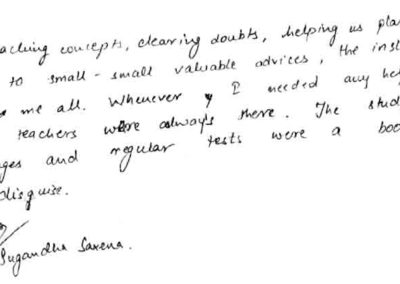 aching concepts, clearing doubts, helping us pla
to small-small valuable advices, the inst
me all. Whenever I needed any he
teachers were always there. The stud
ges and regular tests were a boo
disguise.
Sugandha Saxena.